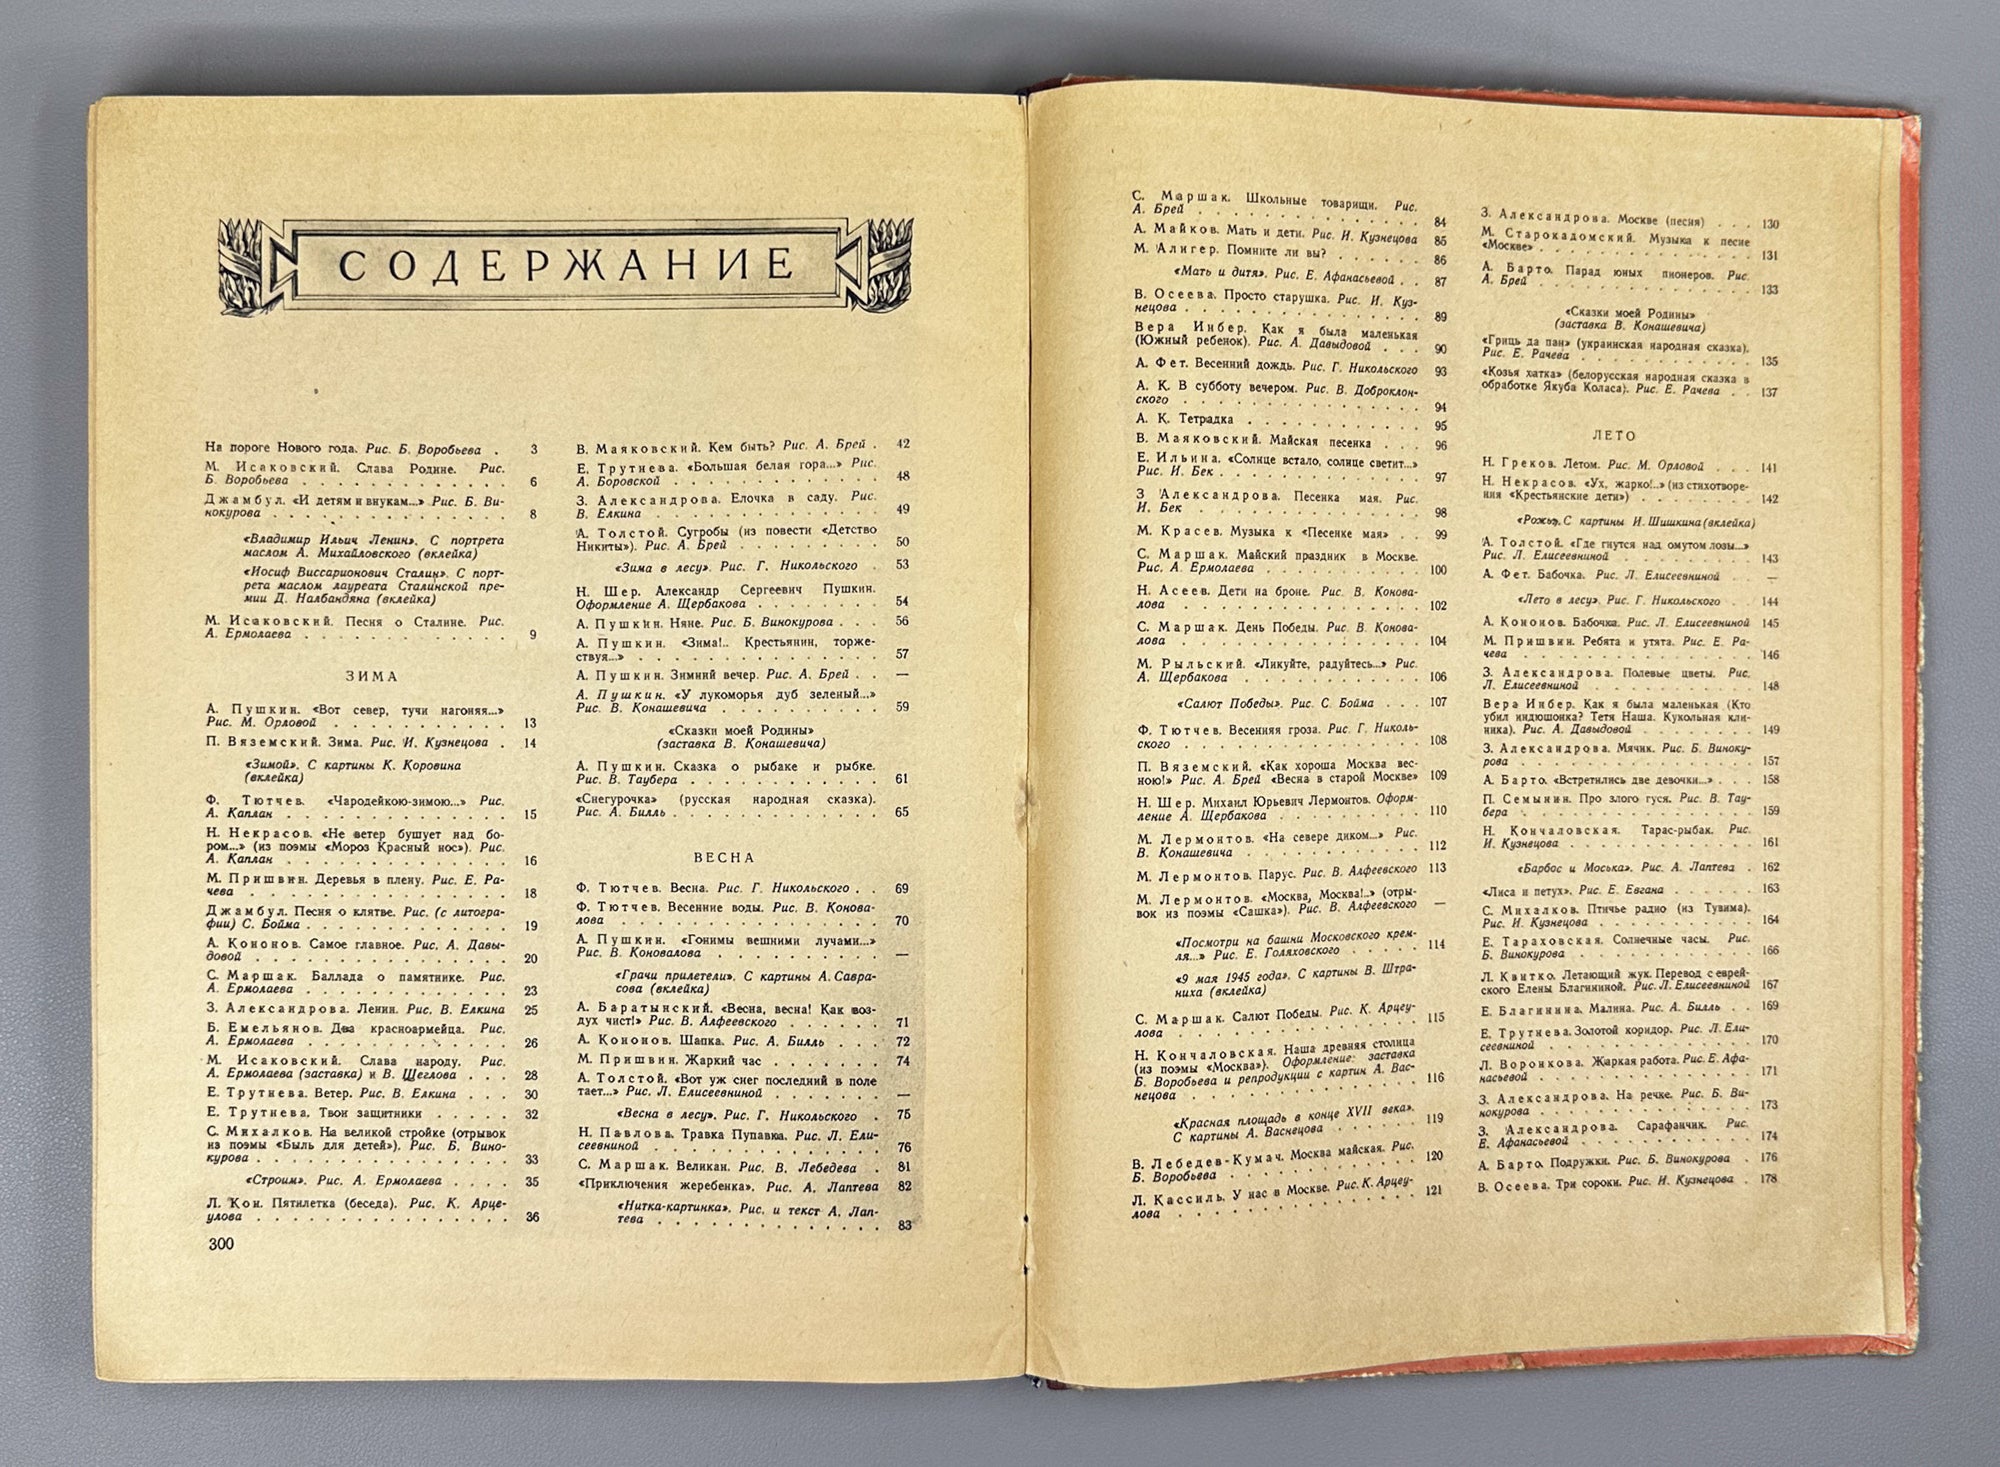 СОДЕРЖАНИЕ
На пороге Нового года. Рис. Б. Воробьева . 3
М. Исаковский. Слава Родине. Рис.
Б. Воробьева . . . . . . . . . . . . 6
Джамбул. «И детям и внукам...» Рис. Б. Ви-
нокурова . . . . . . . . . . . . . . 8
«Владимир Ильич Ленин». С портрета
маслом А. Михайловского (вклейка)
«Иосиф Виссарионович Сталин». С порт-
рета маслом лауреата Сталинской пре-
мии Д. Налбандяна (вклейка)
М. Исаковский. Песня о Сталине. Рис.
А. Ермолаева . . . . . . . . . . . . 9
ЗИМА
А. Пушкин. «Вот север, тучи нагоняя...»
Рис. М. Орловой . . . . . . . . . . . 13
П. Вяземский. Зима. Рис. И. Кузнецова . 14
«Зимой». С картины К. Коровина
(вклейка)
Ф. Тютчев. «Чародейкою-зимою...» Рис.
А. Каплан . . . . . . . . . . . . . . 15
Н. Некрасов. «Не ветер бушует над бо-
ром...» (из поэмы «Мороз Красный нос»). Рис.
А. Каплан . . . . . . . . . . . . . . 16
М. Пришвин. Деревья в плену. Рис. Е. Ра-
чева . . . . . . . . . . . . . . . . 18
Джамбул. Песня о клятве. Рис. (с литогра-
фии) С. Бойма . . . . . . . . . . . . 19
А. Кононов. Самое главное. Рис. А. Давы-
довой . . . . . . . . . . . . . . . . 20
С. Маршак. Баллада о памятнике. Рис.
А. Ермолаева . . . . . . . . . . . . 23
З. Александрова. Ленин. Рис. В. Елкина 25
Б. Емельянов. Два красноармейца. Рис.
А. Ермолаева . . . . . . . . . . . . 26
М. Исаковский. Слава народу. Рис.
А. Ермолаева (заставка) и В. Щеглова . . . 28
Е. Трутнева. Ветер. Рис. В. Елкина . . . 30
Е. Трутнева. Твои защитники . . . . . 32
С. Михалков. На великой стройке (отрывок
из поэмы «Быль для детей»). Рис. Б. Вино-
курова . . . . . . . . . . . . . . . 33
«Строим». Рис. А. Ермолаева . . . . . 35
Л. Кон. Пятилетка (беседа). Рис. К. Арце-
улова . . . . . . . . . . . . . . . . 36
300
В. Маяковский. Кем быть? Рис. А. Брей . 42
Е. Трутнева. «Большая белая гора...» Рис.
А. Боровской . . . . . . . . . . . . 48
З. Александрова. Елочка в саду. Рис.
В. Елкина . . . . . . . . . . . . . . 49
А. Толстой. Сугробы (из повести «Детство
Никиты»). Рис. А. Брей . . . . . . . . 50
«Зима в лесу». Рис. Г. Никольского . 53
Н. Шер. Александр Сергеевич Пушкин.
Оформление А. Щербакова . . . . . . . 54
А. Пушкин. Няне. Рис. Б. Винокурова . . . 56
А. Пушкин. «Зима!.. Крестьянин, торже-
ствуя...» . . . . . . . . . . . . . . 57
А. Пушкин. Зимний вечер. Рис. А. Брей . . —
А. Пушкин. «У лукоморья дуб зеленый...»
Рис. В. Конашевича . . . . . . . . . . 59
«Сказки моей Родины»
(заставка В. Конашевича)
А. Пушкин. Сказка о рыбаке и рыбке.
Рис. В. Таубера . . . . . . . . . . . 61
«Снегурочка» (русская народная сказка).
Рис. А. Билль . . . . . . . . . . . . 65
ВЕСНА
Ф. Тютчев. Весна. Рис. Г. Никольского . . 69
Ф. Тютчев. Весенние воды. Рис. В. Конова-
лова . . . . . . . . . . . . . . . . 70
А. Пушкин. «Гонимы вешними лучами...»
Рис. В. Коновалова . . . . . . . . . . —
«Грачи прилетели». С картины А. Савра-
сова (вклейка)
А. Баратынский. «Весна, весна! Как воз-
дух чист!» Рис. В. Алфеевского . . . . . . 71
А. Кононов. Шапка. Рис. А. Билль . . . 72
М. Пришвин. Жаркий час . . . . . . . 74
А. Толстой. «Вот уж снег последний в поле
тает...» Рис. Л. Елисеевниной . . . . . . . —
«Весна в лесу». Рис. Г. Никольского . 75
Н. Павлова. Травка Пупавка. Рис. Л. Ели-
сеевниной . . . . . . . . . . . . . . 76
С. Маршак. Великан. Рис. В. Лебедева . 81
«Приключения жеребенка». Рис. А. Лаптева 82
«Нитка-картинка». Рис. и текст А. Лап-
тева . . . . . . . . . . . . . . . . 83
С. Маршак. Школьные товарищи. Рис.
А. Брей . . . . . . . . . . . . . . . 84
А. Майков. Мать и дети. Рис. И. Кузнецова 85
М. Алигер. Помните ли вы? . . . . . . 86
«Мать и дитя». Рис. Е. Афанасьевой . . 87
В. Осеева. Просто старушка. Рис. И. Куз-
нецова . . . . . . . . . . . . . . . 89
Вера Инбер. Как я была маленькая
(Южный ребенок). Рис. А. Давыдовой . . . 90
А. Фет. Весенний дождь. Рис. Г. Никольского 93
А. К. В субботу вечером. Рис. В. Доброклон-
ского . . . . . . . . . . . . . . . . 94
А. К. Тетрадка . . . . . . . . . . . . 95
В. Маяковский. Майская песенка . . . 96
Е. Ильина. «Солнце встало, солнце светит...»
Рис. И. Бек . . . . . . . . . . . . . 97
З Александрова. Песенка мая. Рис.
И. Бек . . . . . . . . . . . . . . . 98
М. Красев. Музыка к «Песенке мая» . . 99
С. Маршак. Майский праздник в Москве.
Рис. А. Ермолаева . . . . . . . . . . 100
Н. Асеев. Дети на броне. Рис. В. Конова-
лова . . . . . . . . . . . . . . . . 102
С. Маршак. День Победы. Рис. В. Конова-
лова . . . . . . . . . . . . . . . . 104
М. Рыльский. «Ликуйте, радуйтесь...» Рис.
А. Щербакова . . . . . . . . . . . . 106
«Салют Победы». Рис. С. Бойма . . . 107
Ф. Тютчев. Весенняя гроза. Рис. Г. Николь-
ского . . . . . . . . . . . . . . . . 108
П. Вяземский. «Как хороша Москва вес-
ною!» Рис. А. Брей «Весна в старой Москве» 109
Н. Шер. Михаил Юрьевич Лермонтов. Оформ-
ление А. Щербакова . . . . . . . . . . 110
М. Лермонтов. «На севере диком...» Рис.
В. Конашевича . . . . . . . . . . . . 112
М. Лермонтов. Парус. Рис. В. Алфеевского 113
М. Лермонтов. «Москва, Москва!..» (отры-
вок из поэмы «Сашка»). Рис. В. Алфеевского —
«Посмотри на башни Московского крем-
ля...» Рис. Е. Голяховского . . . . . 114
«9 мая 1945 года». С картины В. Штра-
ниха (вклейка)
С. Маршак. Салют Победы. Рис. К. Арцеу-
лова . . . . . . . . . . . . . . . . 115
Н. Кончаловская. Наша древняя столица
(из поэмы «Москва»). Оформление: заставка
Б. Воробьева и репродукции с картин А. Вас-
нецова . . . . . . . . . . . . . . . 116
«Красная площадь в конце XVII века».
С картины А. Васнецова . . . . . . . 119
В. Лебедев-Кумач. Москва майская. Рис.
Б. Воробьева . . . . . . . . . . . . 120
Л. Кассиль. У нас в Москве. Рис. К. Арцеу-
лова . . . . . . . . . . . . . . . . 121
З. Александрова. Москве (песня) . . . 130
М. Старокадомский. Музыка к песне
«Москве» . . . . . . . . . . . . . . 131
А. Барто. Парад юных пионеров. Рис.
А. Брей . . . . . . . . . . . . . . . 133
«Сказки моей Родины»
(заставка В. Конашевича)
«Гриць да пан» (украинская народная сказка).
Рис. Е. Рачева . . . . . . . . . . . . 135
«Козья хатка» (белорусская народная сказка в
обработке Якуба Коласа). Рис. Е. Рачева . . 137
ЛЕТО
Н. Греков. Летом. Рис. М. Орловой . . . 141
Н. Некрасов. «Ух, жарко!..» (из стихотворе-
ния «Крестьянские дети») . . . . . . . 142
«Рожь». С картины И. Шишкина (вклейка)
А. Толстой. «Где гнутся над омутом лозы...»
Рис. Л. Елисеевниной . . . . . . . . . 143
А. Фет. Бабочка. Рис. Л. Елисеевниной . . —
«Лето в лесу». Рис. Г. Никольского . . 144
А. Кононов. Бабочка. Рис. Л. Елисеевниной 145
М. Пришвин. Ребята и утята. Рис. Е. Ра-
чева . . . . . . . . . . . . . . . . 146
З. Александрова. Полевые цветы. Рис.
Л. Елисеевниной . . . . . . . . . . . 148
Вера Инбер. Как я была маленькая (Кто
убил индюшонка? Тетя Наша. Кукольная кли-
ника). Рис. А. Давыдовой . . . . . . . 149
З. Александрова. Мячик. Рис. Б. Виноку-
рова . . . . . . . . . . . . . . . . 157
А. Барто. «Встретились две девочки...» . . . 158
П. Семынин. Про злого гуся. Рис. В. Тау-
бера . . . . . . . . . . . . . . . . 159
Н. Кончаловская. Тарас-рыбак. Рис.
И. Кузнецова . . . . . . . . . . . . 161
«Барбос и Моська». Рис. А. Лаптева . 162
«Лиса и петух». Рис. Е. Евгана . . . . . 163
С. Михалков. Птичье радио (из Тувима).
Рис. И. Кузнецова . . . . . . . . . . 164
Е. Тараховская. Солнечные часы. Рис.
Б. Винокурова . . . . . . . . . . . . 166
Л. Квитко. Летающий жук. Перевод с еврей-
ского Елены Благининой. Рис. Л. Елисеевниной 167
Е. Благинина. Малина. Рис. А. Билль . . 169
Е. Трутнева. Золотой коридор. Рис. Л. Ели-
сеевниной . . . . . . . . . . . . . . 170
Л. Воронкова. Жаркая работа. Рис. Е. Афа-
насьевой . . . . . . . . . . . . . . 171
З. Александрова. На речке. Рис. Б. Ви-
нокурова . . . . . . . . . . . . . . 173
З. Александрова. Сарафанчик. Рис.
Е. Афанасьевой . . . . . . . . . . . . 174
А. Барто. Подружки. Рис. Б. Винокурова . 176
В. Осеева. Три сороки. Рис. И. Кузнецова . 178